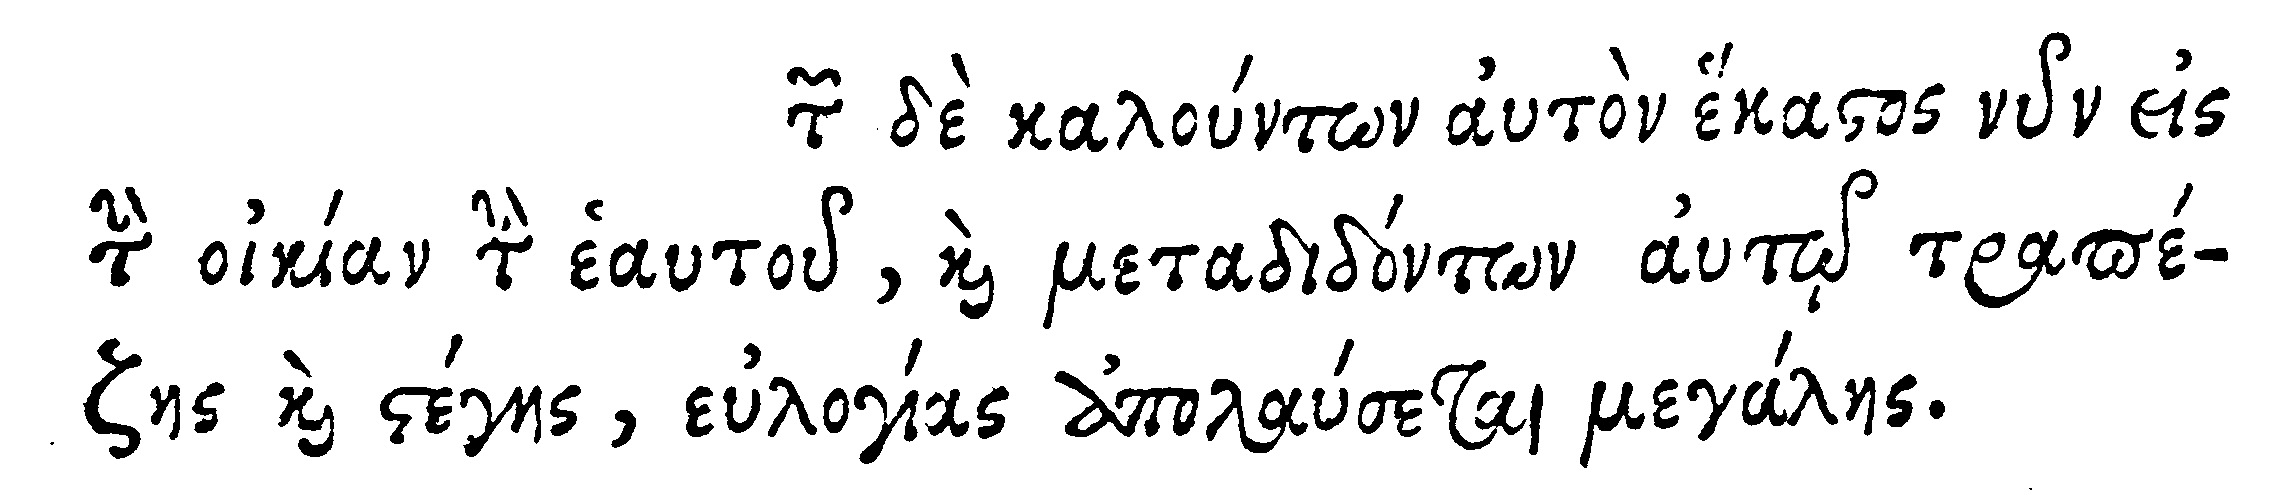 τῶν δὲ καλούντων αὐτὸν ἕκαστος νῦν εἰς
τὴν οἰκίαν τὴν ἑαυτοῦ, καὶ μεταδιδόντων αὐτῷ τραπέ-
ζης καὶ στέγης, εὐλογίας ἀπολαύσεται μεγάλης.